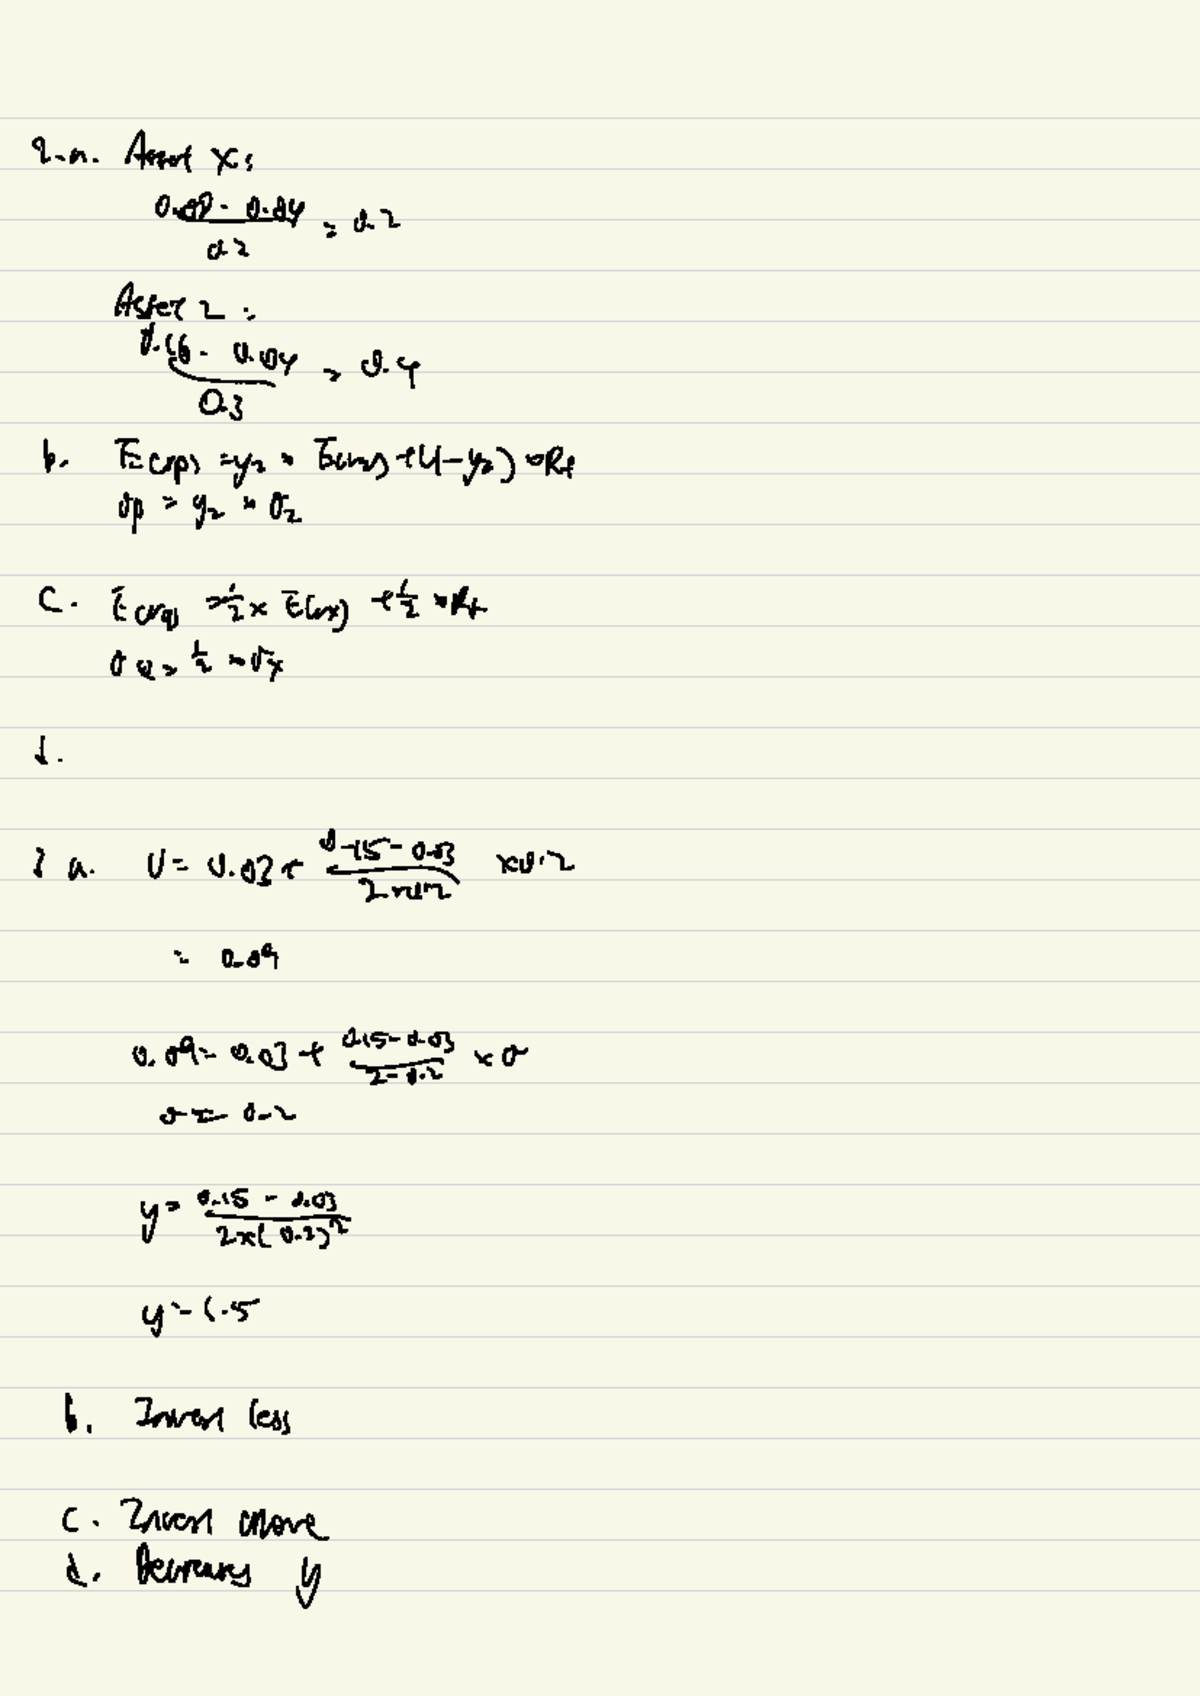 2.a. Asset X:
0.08 - 0.04
0.2
= 0.2
Asset 2 :
0.16 - 0.04
0.3
= 0.4
b. E(rp) = y2 × E(r2) + (1-y2) × Rf
σp = y2 × σ2
C. E(rq) = 1/2 × E(rx) + 1/2 × Rf
σQ = 1/2 × σx
d.
3 a. U = 0.03 + 0.15 - 0.03 × 0.2
2×0.2
= 0.09
0.09 = 0.03 + 0.15 - 0.03 × σ
2 - 0.2
σ = 0.2
y = 0.15 - 0.03
2×(0.2)²
y = 1.5
b. Invest less
c. Invest more
d. Decreases y